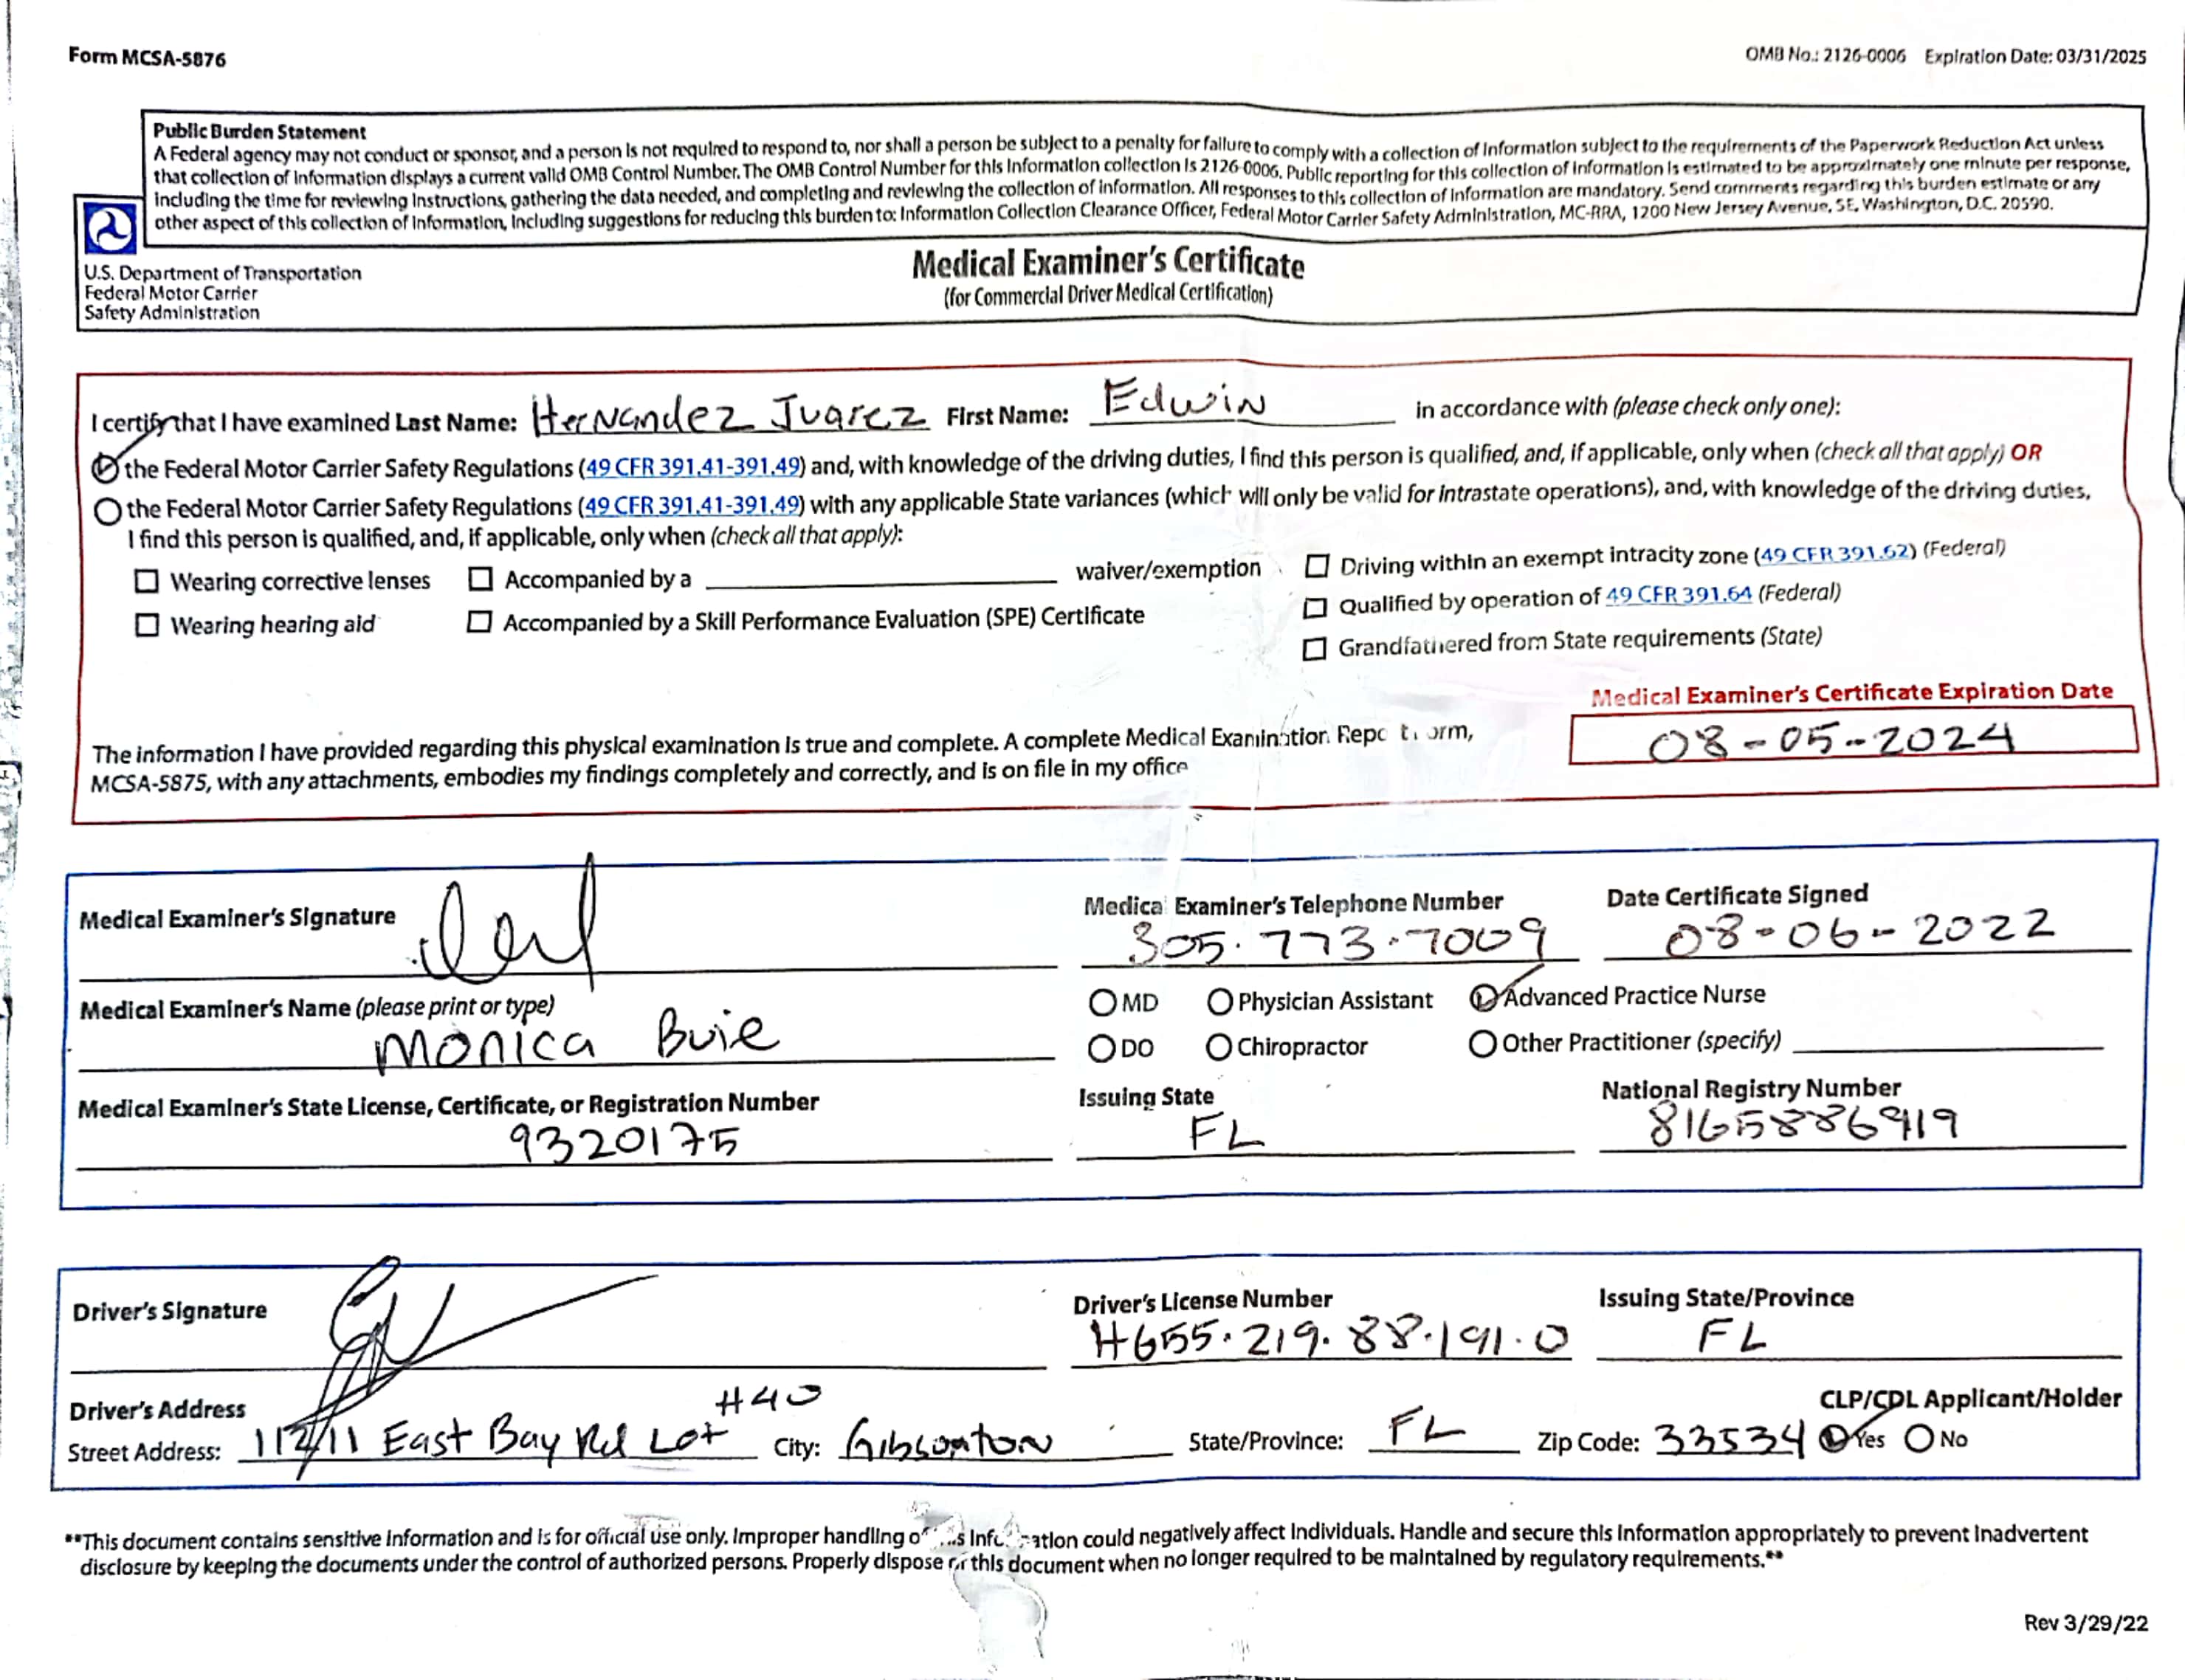 Form MCSA-5876
OMB No.: 2126-0006 Expiration Date: 03/31/2025
Public Burden Statement
A Federal agency may not conduct or sponsor, and a person is not required to respond to, nor shall a person be subject to a penalty for failure to comply with a collection of information subject to the requirements of the Paperwork Reduction Act unless
that collection of information displays a current valid OMB Control Number. The OMB Control Number for this information collection is 2126-0006. Public reporting for this collection of information is estimated to be approximately one minute per response,
including the time for reviewing instructions, gathering the data needed, and completing and reviewing the collection of information. All responses to this collection of information are mandatory. Send comments regarding this burden estimate or any
other aspect of this collection of information, including suggestions for reducing this burden to: Information Collection Clearance Officer, Federal Motor Carrier Safety Administration, MC-RRA, 1200 New Jersey Avenue, SE, Washington, D.C. 20590.
U.S. Department of Transportation
Federal Motor Carrier
Safety Administration
Medical Examiner's Certificate
(for Commercial Driver Medical Certification)
I certify that I have examined Last Name: Hernandez Juarez First Name: Edwin in accordance with (please check only one):
the Federal Motor Carrier Safety Regulations (49 CFR 391.41-391.49) and, with knowledge of the driving duties, I find this person is qualified, and, if applicable, only when (check all that apply) OR
the Federal Motor Carrier Safety Regulations (49 CFR 391.41-391.49) with any applicable State variances (which will only be valid for intrastate operations), and, with knowledge of the driving duties,
I find this person is qualified, and, if applicable, only when (check all that apply):
Wearing corrective lenses Accompanied by a waiver/exemption Driving within an exempt intracity zone (49 CFR 391.62) (Federal)
Wearing hearing aid Accompanied by a Skill Performance Evaluation (SPE) Certificate Qualified by operation of 49 CFR 391.64 (Federal)
Grandfathered from State requirements (State)
Medical Examiner's Certificate Expiration Date
08-05-2024
The information I have provided regarding this physical examination is true and complete. A complete Medical Examination Report Form,
MCSA-5875, with any attachments, embodies my findings completely and correctly, and is on file in my office
Medical Examiner's Signature Medical Examiner's Telephone Number Date Certificate Signed
305.773.7009 08-06-2022
Medical Examiner's Name (please print or type) MD Physician Assistant Advanced Practice Nurse
Monica Buie DO Chiropractor Other Practitioner (specify)
Medical Examiner's State License, Certificate, or Registration Number Issuing State National Registry Number
9320175 FL 8165886919
Driver's Signature Driver's License Number Issuing State/Province
H655.219.88.191.0 FL
Driver's Address #40 CLP/CDL Applicant/Holder
Street Address: 11211 East Bay Rd Lot City: Gibsonton State/Province: FL Zip Code: 33534 Yes No
**This document contains sensitive information and is for official use only. Improper handling of this information could negatively affect individuals. Handle and secure this information appropriately to prevent inadvertent
disclosure by keeping the documents under the control of authorized persons. Properly dispose of this document when no longer required to be maintained by regulatory requirements.**
Rev 3/29/22